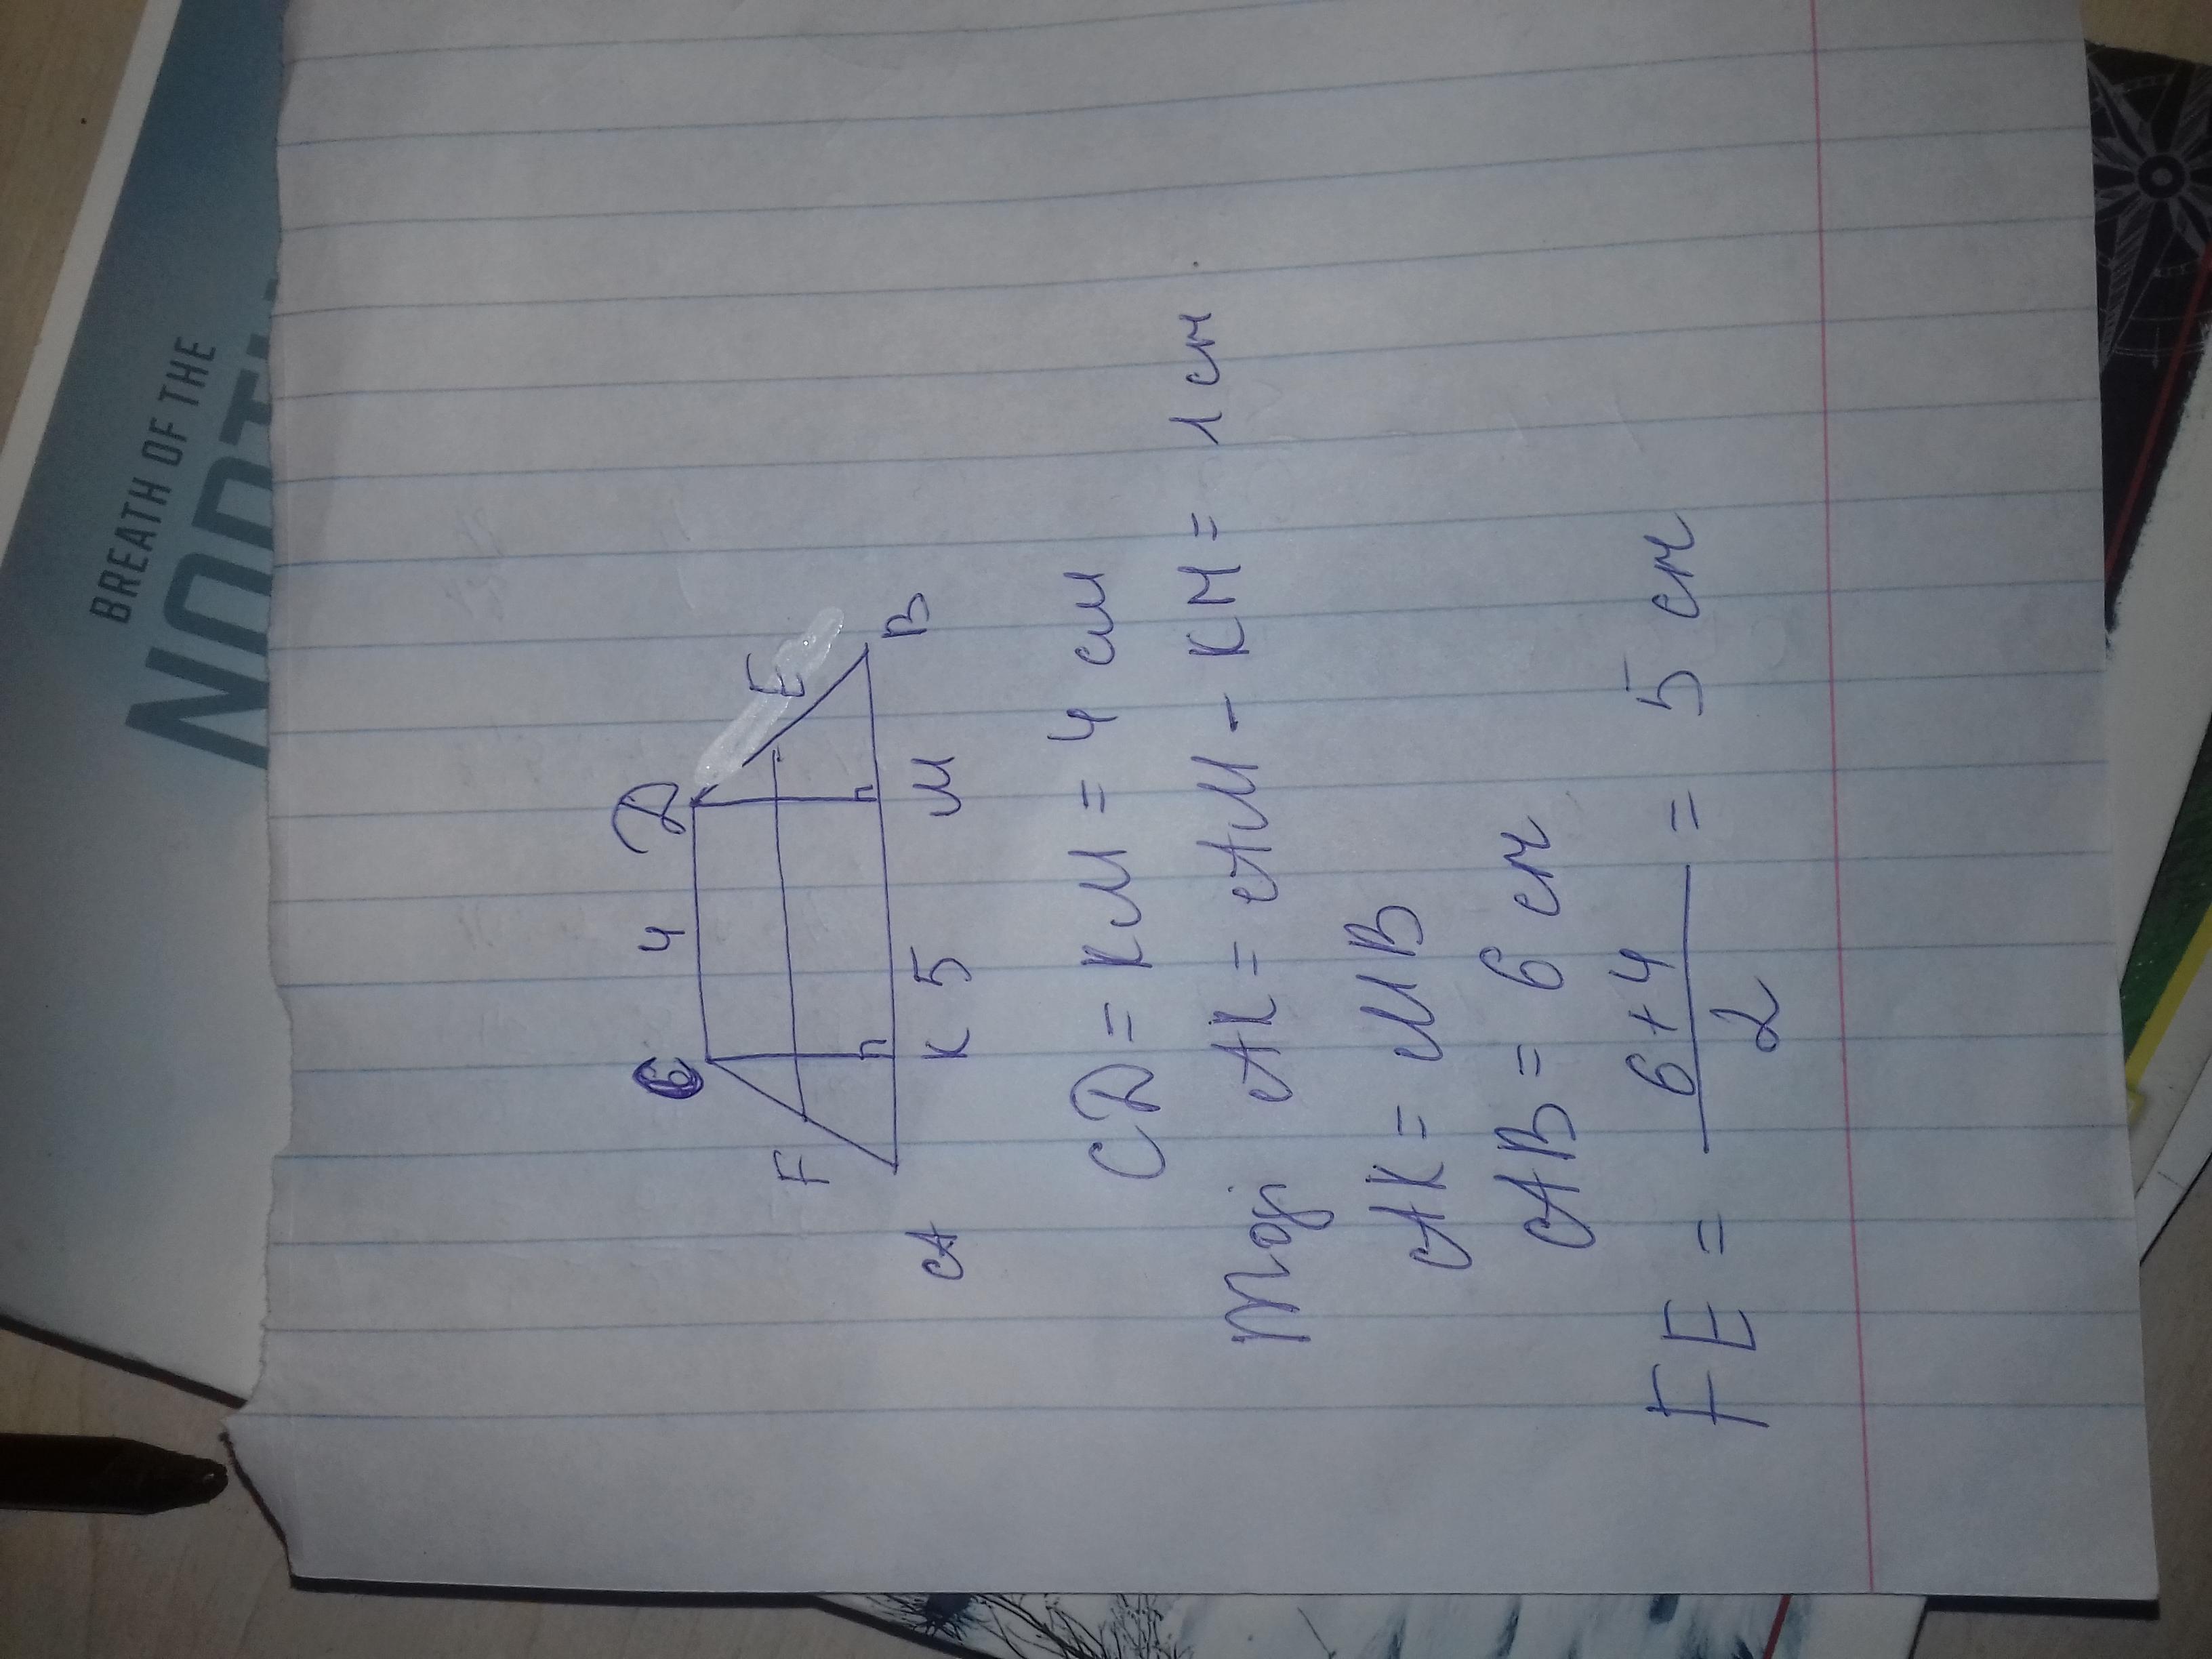 BREATH OF THE
4
C D
F E
A K 5 M B
CD = KM = 4 см
AK = AM - KM = 1 см
AK = MB
AB = 6 см
FE = 6+4 / 2 = 5 см